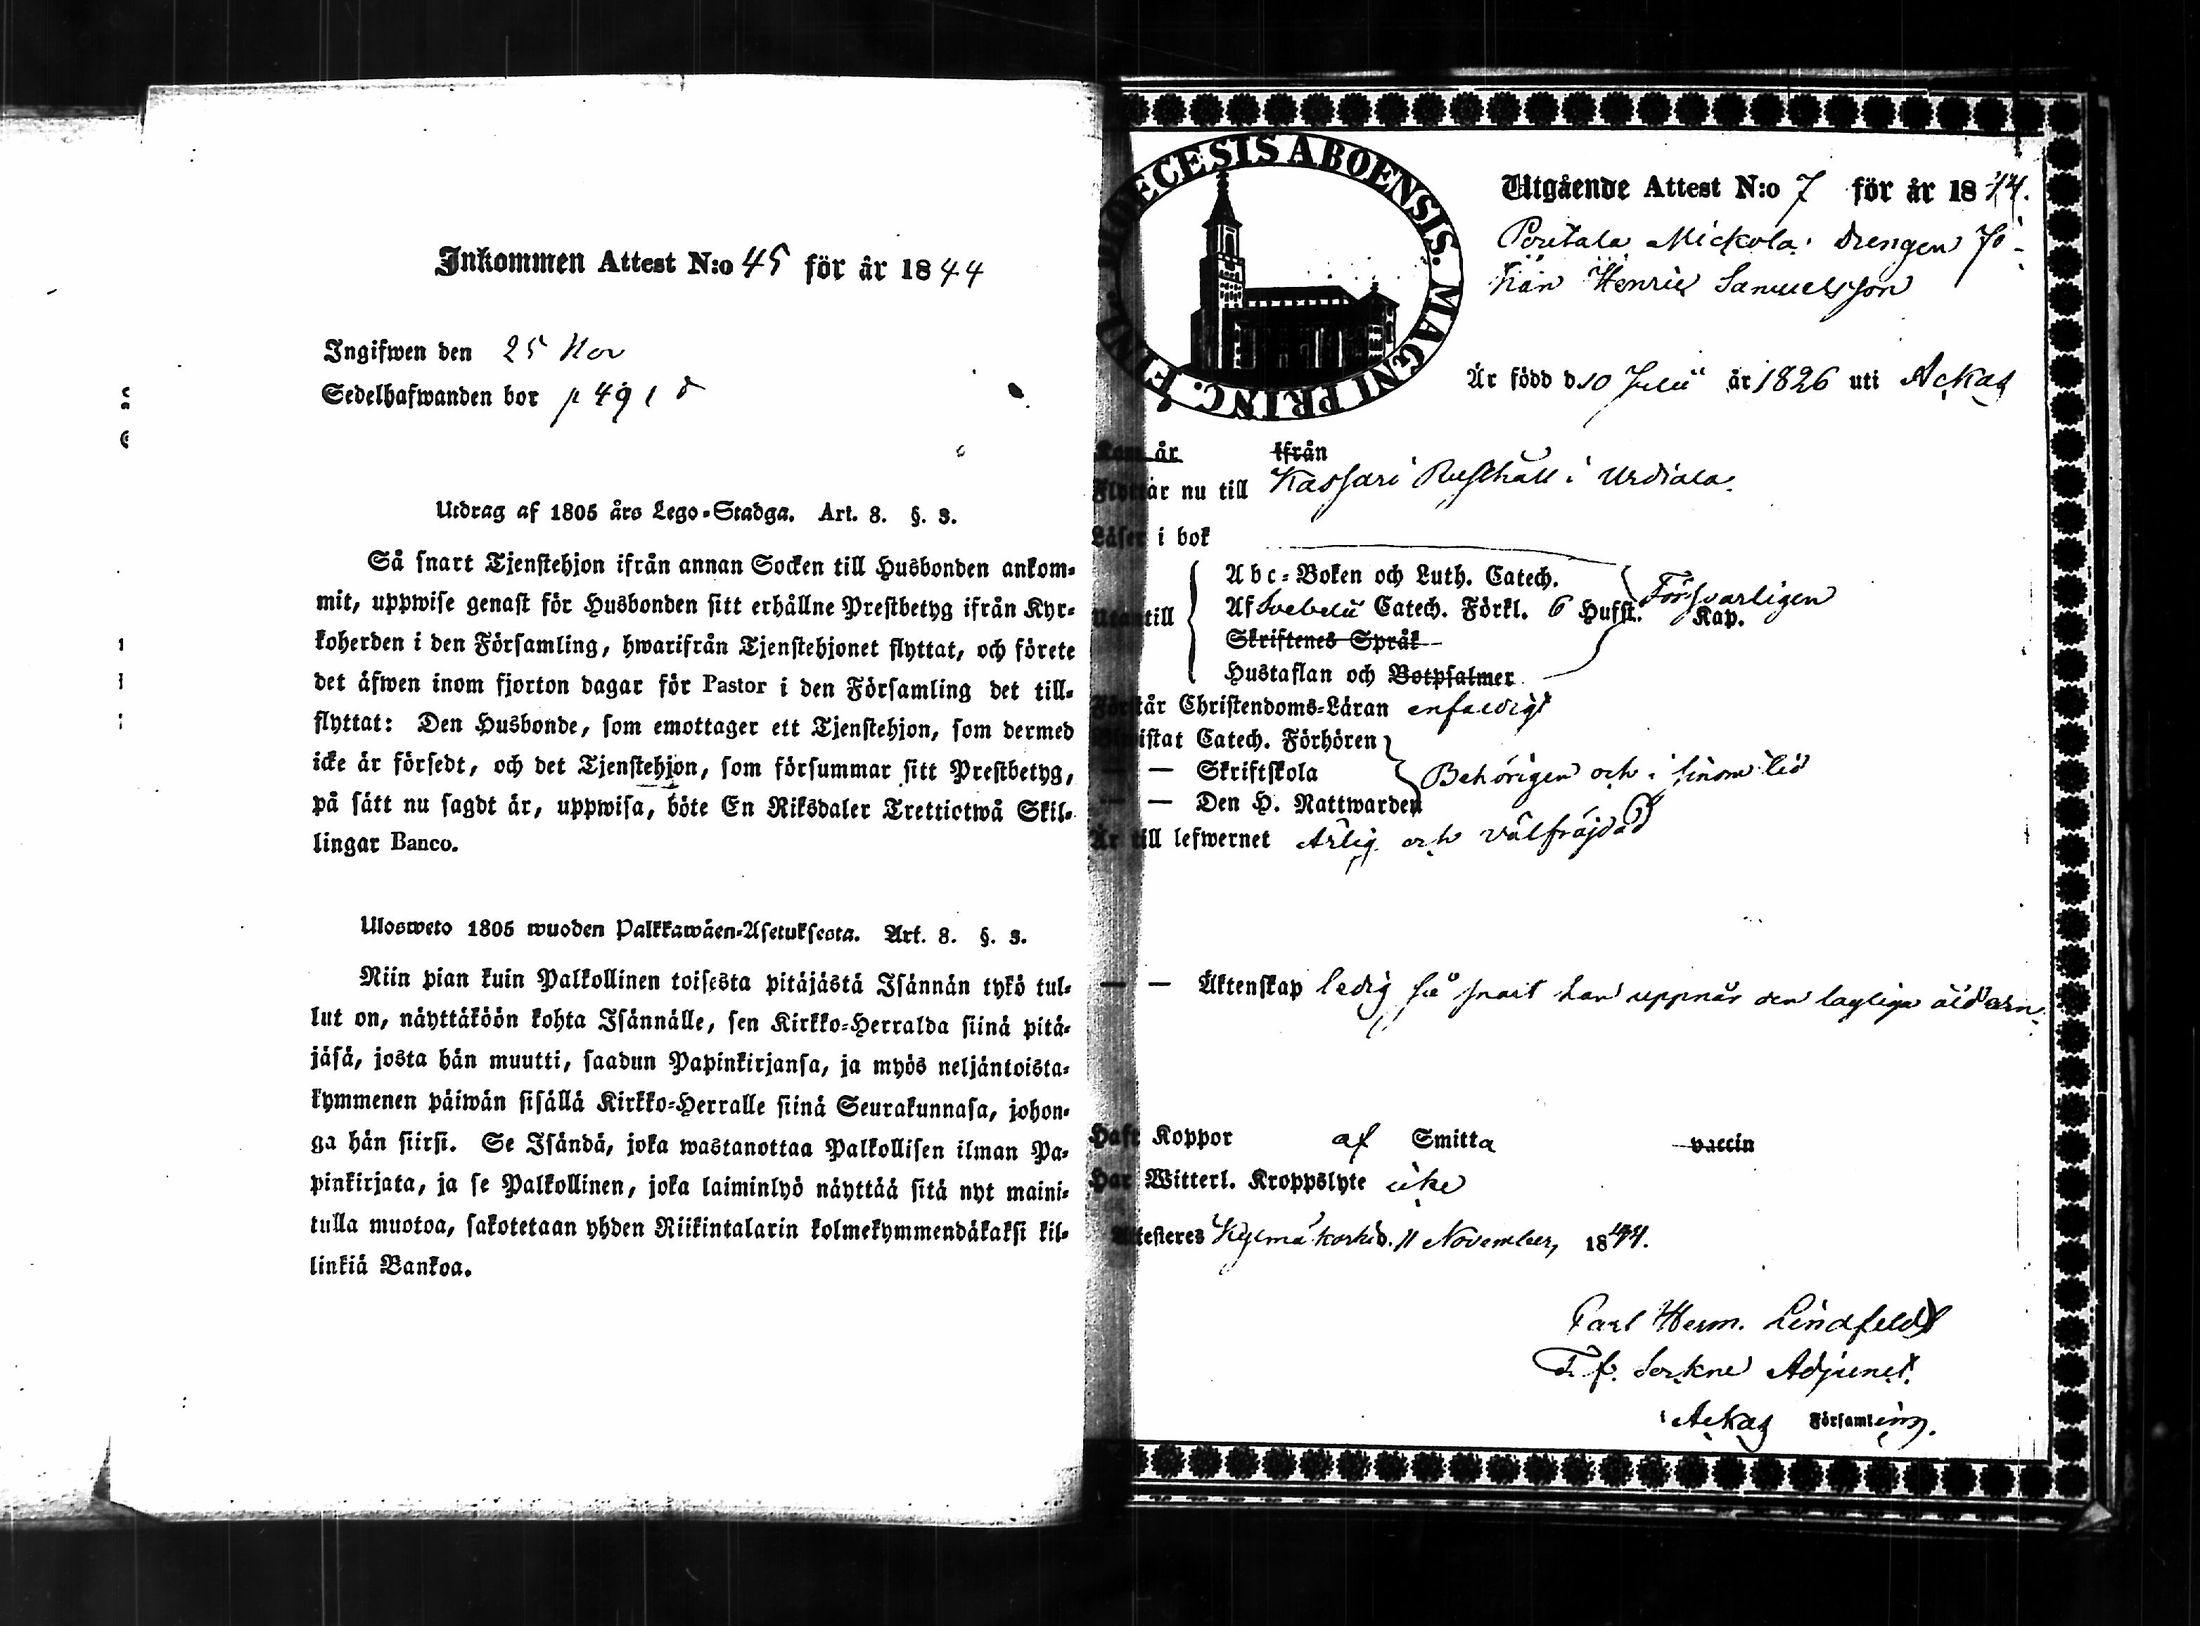 Inkommen Attest N:o 45 för år 1844
Ingifwen den 25 Nov
Sedelhafwanden bor p 491
Utdrag af 1805 års Lego-Stadga. Art. 8. §. 3.
Så snart Tjenstehjon ifrån annan Socken till Husbonden ankom-
mit, uppwise genast för Husbonden sitt erhållne Prestbetyg ifrån Kyr-
koherden i den Församling, hwarifrån Tjenstehjonet flyttat, och förete
det äfwen inom fjorton dagar för Pastor i den Församling det till-
flyttat: Den Husbonde, som emottager ett Tjenstehjon, som dermed
icke är försedt, och det Tjenstehjon, som försummar sitt Prestbetyg,
på sätt nu sagdt är, uppwisa, böte En Riksdaler Trettiotwå Skil-
lingar Banco.
Ulosweto 1805 wuoden Palkkawäen-Asetuksesta. Art. 8. §. 3.
Niin pian kuin Palkollinen toisesta pitäjästä Isännän tykö tul-
lut on, näyttäköön kohta Isännälle, sen Kirkko-Herralda siinä pitä-
jäsä, josta hän muutti, saadun Papinkirjansa, ja myös neljäntoista-
kymmenen päiwän sisällä Kirkko-Herralle siinä Seurakunnasa, johon-
ga hän siirsi. Se Isändä, joka wastanottaa Palkollisen ilman Pa-
pinkirjata, ja se Palkollinen, joka laiminlyö näyttää sitä nyt maini-
tulla muotoa, sakotetaan yhden Riikintalarin kolmekymmendäkaksi kil-
linkiä Bankoa.
DIOECESIS ABOENSIS. MAGNI PRINC. FINL.
Utgående Attest N:o 7 för år 1844.
Pentala Mickola: Drengen Jo-
han Henric Samuelsson
Är född d 10 Julii år 1826 uti Ackas
Kom år ifrån
Flyttar nu till Kassari Rusthåll i Urdiala.
Läser i bok
Abc-Boken och Luth. Catech.
Försvarligen
Utantill Af Svebelii Catech. Förkl. 6 Hufst. Kap.
Skriftenes Språk
Hustaflan och Botpsalmer
Förstår Christendoms-Läran enfaldigt
Bewistat Catech. Förhören
— — Skriftskola Behörigen och i sinom tid
— — Den H. Nattwarden
Är till lefwernet Ärlig och välfräjdad
— — Äktenskap ledig så snart han uppnår den lagliga åldern.
Haft Koppor af Smitta vaccin
Har Witterl. Kroppslyte icke
Attesteres Kylmäkoski d. 11 November, 1844.
Carl Herm. Lindfeldt
T. f. Sockne Adjunct.
i Ackas Församling.